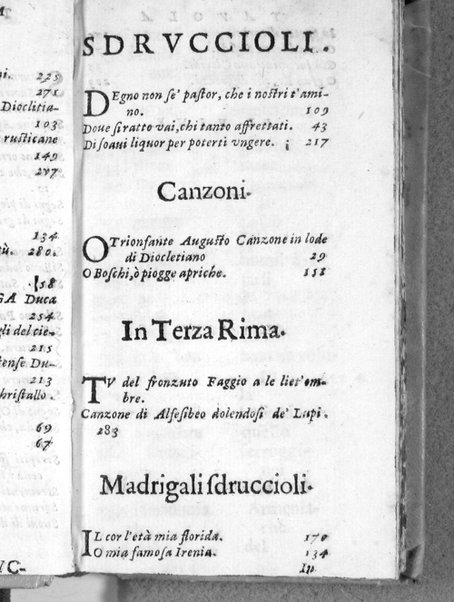 ni. 225
271
Dioclitia-
103
rusticane
149
277
134
ù. 280.
158
GA Duca
254
gli del cie-
215
tense Du-
213
hristallo.
69
67
VC-
SDRVCCIOLI.
DEgno non se' pastor, che i nostri t'ami-
no. 109
Doue sì ratto vai, chi tanto affrettati. 43
Di soaui liquor per poterti vngere. 217
Canzoni.
O Trionfante Augusto Canzone in lode
di Diocletiano 29
O Boschi, ò piogge apriche. 151
In Terza Rima.
TV del fronzuto Faggio a le liet'om-
bre.
Canzone di Alfesibeo dolendosi de' Lupi.
283
Madrigali sdruccioli.
IL cor l'età mia florida. 170
IO mia famosa Irenia. 134
In